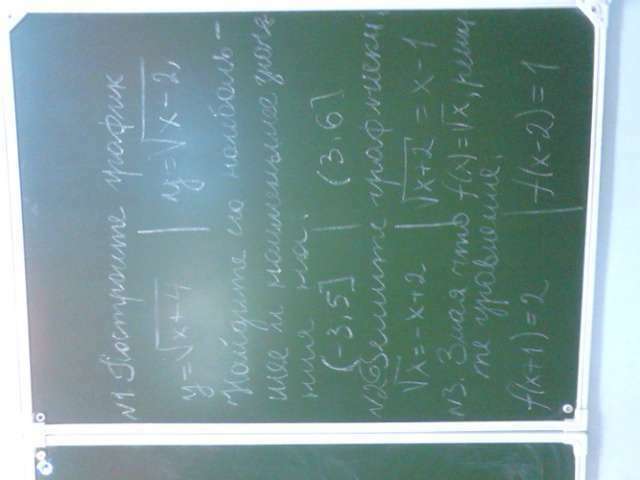 №1 Постройте график
y=√x+4 | y=√x-2,
Найдите его наиболь-
шее и наименьшее значе
ния на:
(-3,5] (3,6]
№2 Решите графически:
√x=-x+2 | √x+2=x-1
№3. Зная что f(x)=√x, реши
те уравнение.
f(x+1)=2 | f(x-2)=1